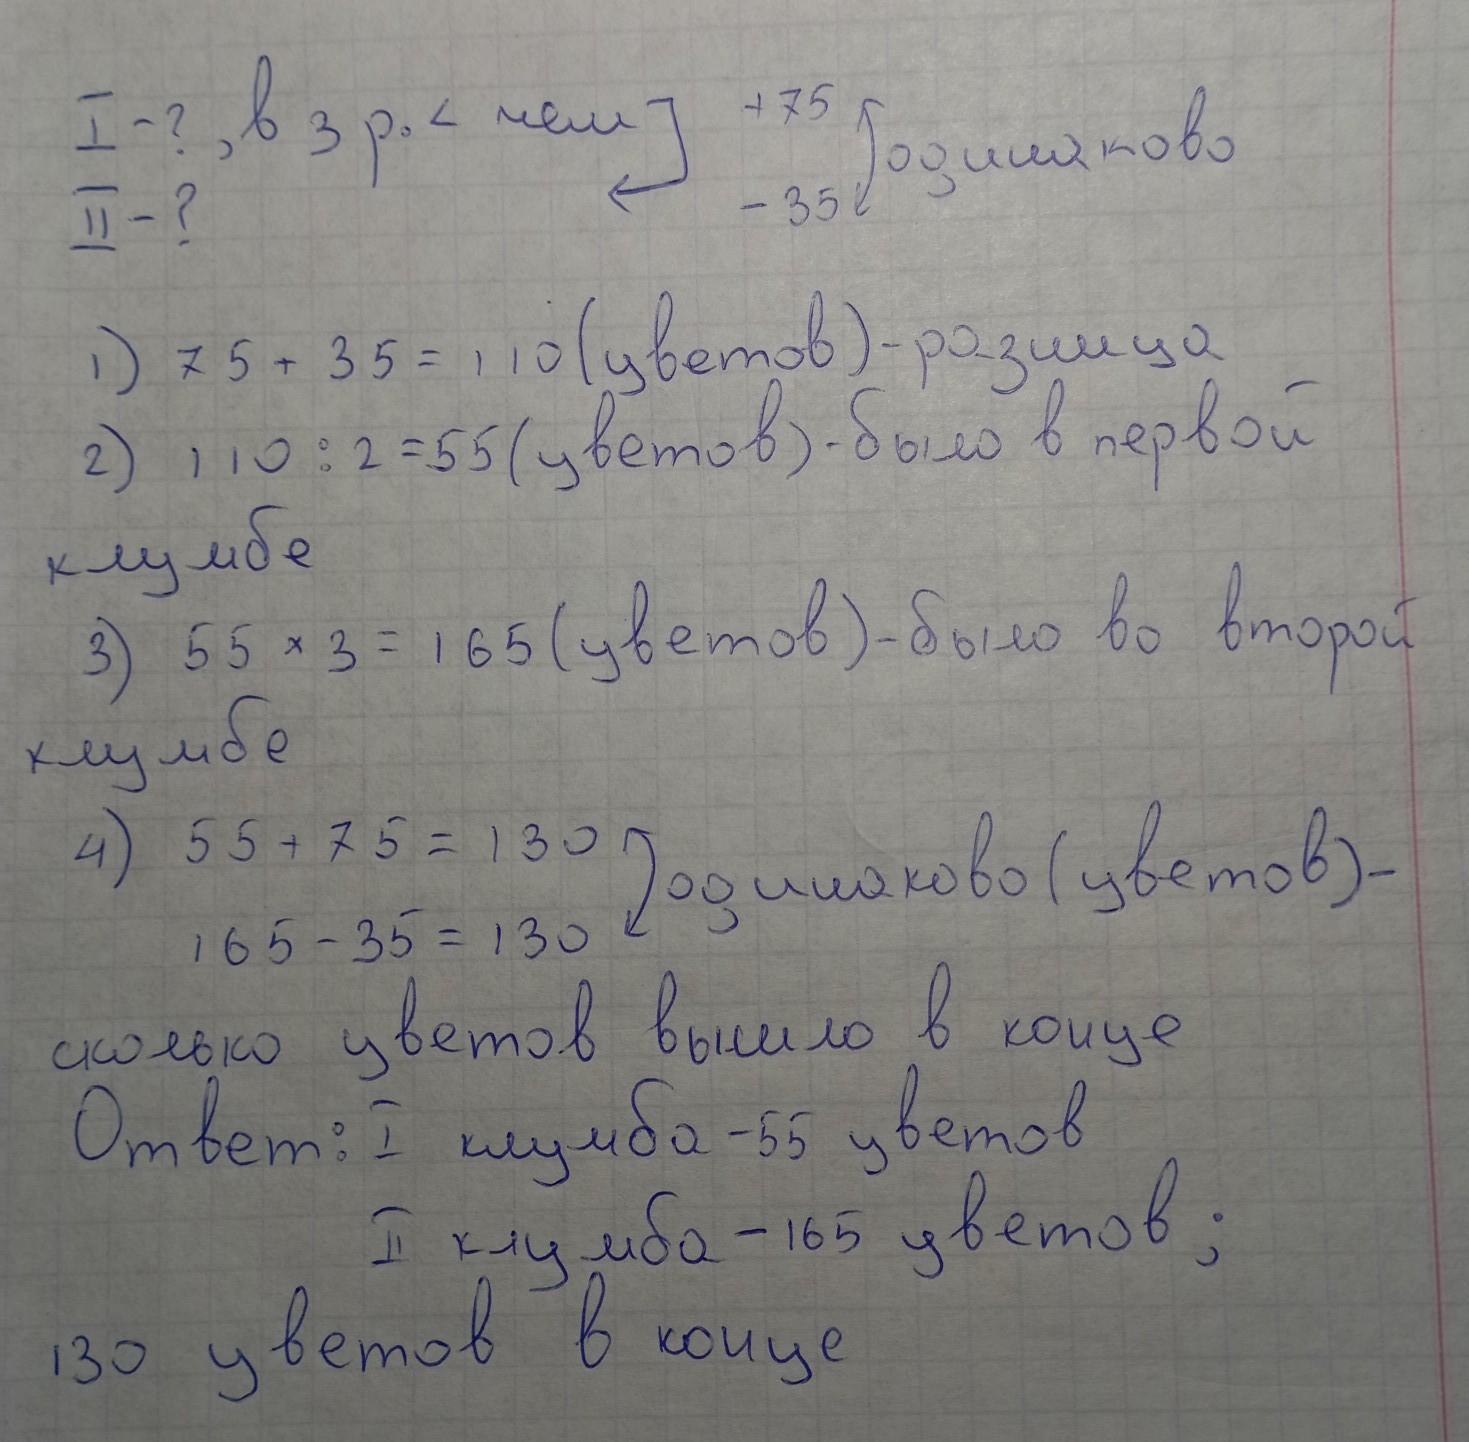 I - ?, в 3 р. < чем +75
одинаково
II - ? - 35
1) 75 + 35 = 110 (цветов) - разница
2) 110 : 2 = 55 (цветов) - было в первой
клумбе
3) 55 × 3 = 165 (цветов) - было во второй
клумбе
4) 55 + 75 = 130
одинаково (цветов) -
165 - 35 = 130
сколько цветов вышло в конце
Ответ: I клумба - 55 цветов
II клумба - 165 цветов;
130 цветов в конце